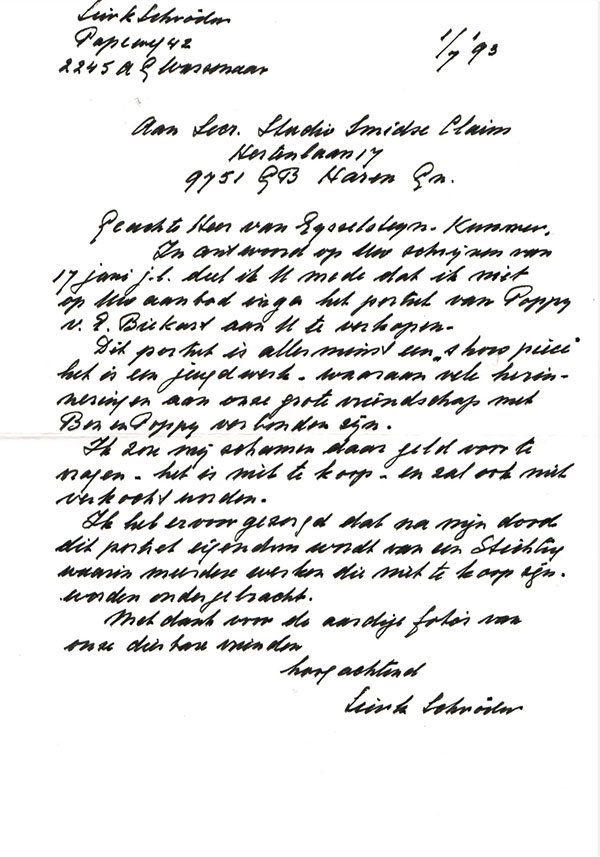 Sierk Schröder
Papeweg 42
2245 AG Wassenaar
1/7 '93
Aan Secr. Studio Smidse Claim
Hertenlaan 17
9751 GB Haren Gn.
Geachte Heer van Eysselsteyn-Kummer,
In antwoord op Uw schrijven van
17 juni j.l. deel ik U mede dat ik niet
op Uw aanbod inga het portret van Poppy
v. E. Biekart aan U te verkopen.
Dit portret is allerminst een "show piece"
het is een jeugdwerk - waaraan vele herin-
neringen aan onze grote vriendschap met
Ben en Poppy verbonden zijn.
Ik zou mij schamen daar geld voor te
vragen - het is niet te koop - en zal ook niet
verkocht worden.
Ik heb ervoor gezorgd dat na mijn dood
dit portret eigendom wordt van een Stichting
waarin meerdere werken die niet te koop zijn.
worden ondergebracht.
Met dank voor de aardige foto's van
onze dierbare vrienden
hoogachtend
Sierk Schröder